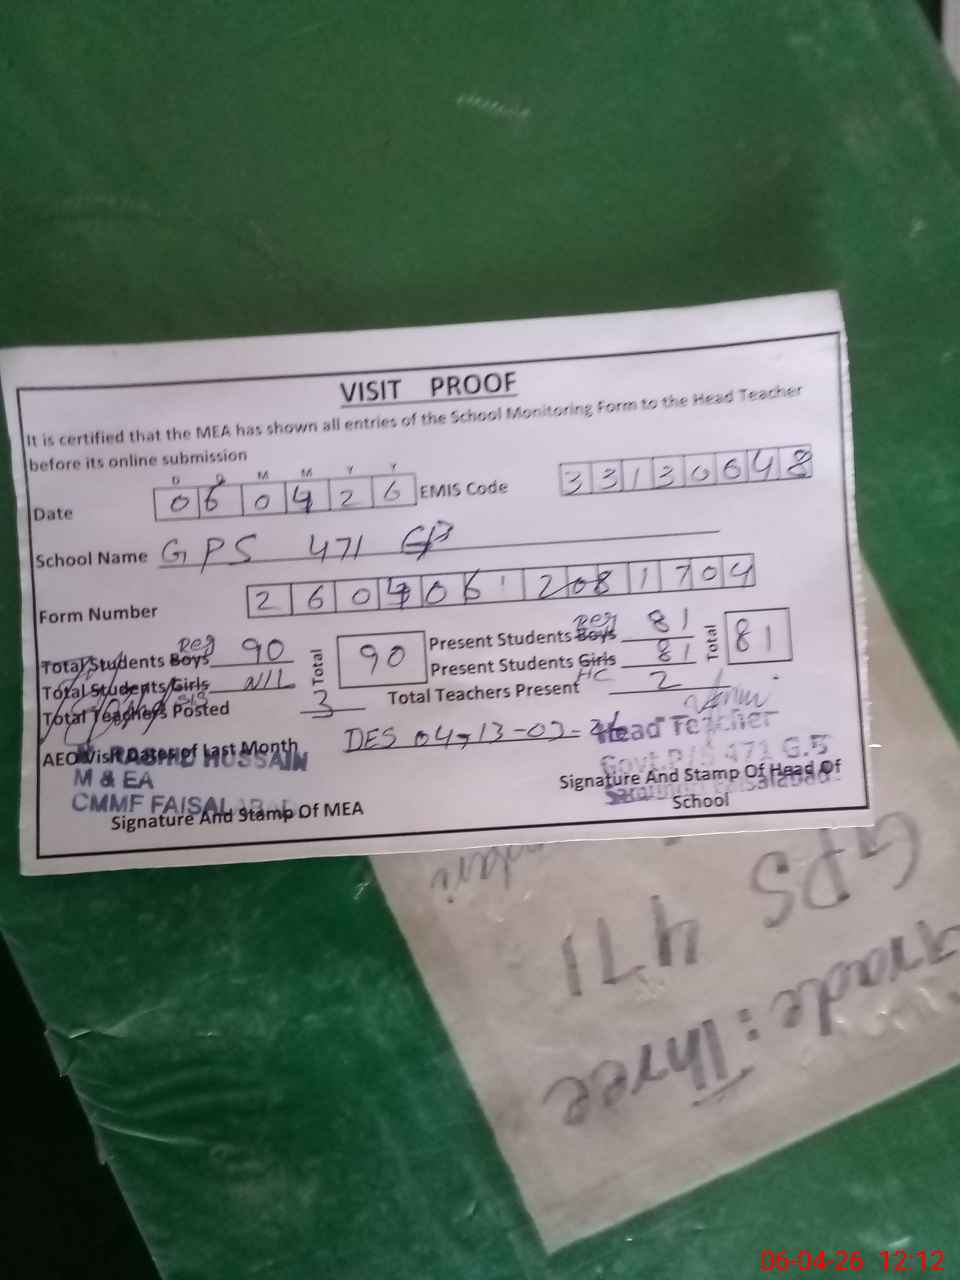 VISIT PROOF
It is certified that the MEA has shown all entries of the School Monitoring Form to the Head Teacher
before its online submission
D D M M Y Y
Date 060426 EMIS Code 33130648
School Name GPS 471 GB
Form Number 260406 2081704
Total Students Boys Reg 90 Total 90 Present Students Boys Reg 81 Total 81
Total Students Girls Nil Present Students Girls HC 81
Total Teachers Posted 3 Total Teachers Present 2
AEO Visit Dates of Last Month DES 04, 13-03-26
RASHID HUSSAIN
M & EA
CMMF FAISALABAD
Signature And Stamp Of MEA
Head Teacher
Govt. P/S 471 G.B
Faisalabad
Signature And Stamp Of Head Of
School
GPS 471
Grade: Three
06-04-26 12:12